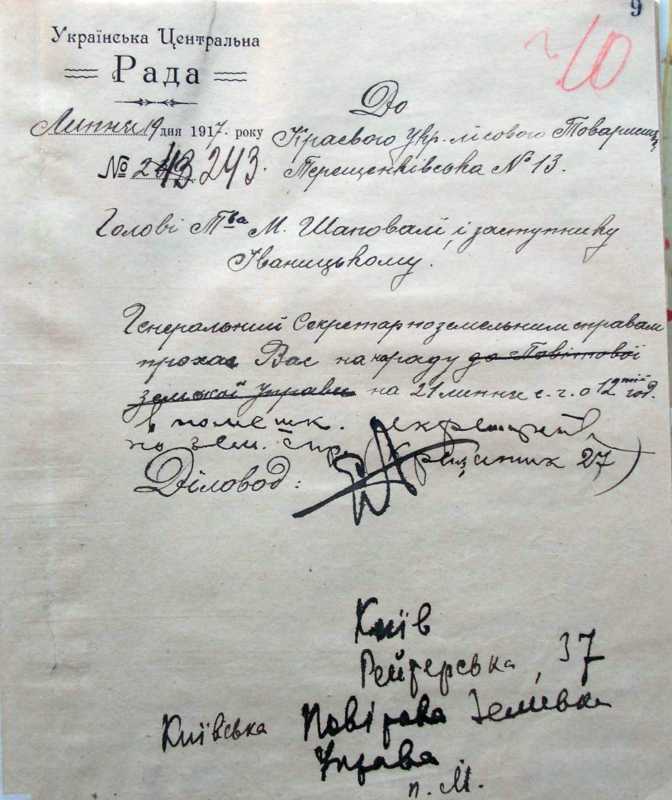 9
10
Українська Центральна
Рада
Липня 19 дня 1917. року
№ 243. 243.
До
Краєвого Укр. лісового Товариш.
Терещенківська № 13.
Голові Тва М. Шаповалі, і заступнику
Іваницькому.
Генеральний Секретар по земельним справам
прохає Вас на нараду до Повітової
земської Управи на 21 липня с. г. о 12тій год.
в помешк.
по зем. спр. Крещатик 27)
Діловод:
Київ
Рейтерська, 37
Київська Повітова Земська
Управа
п. М.